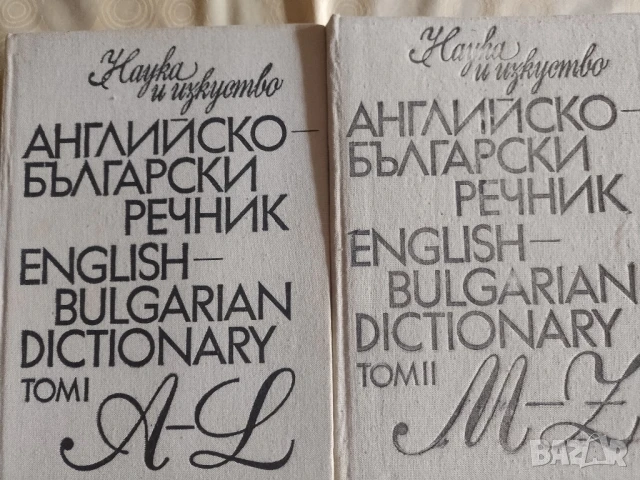 Наука
и изкуство
АНГЛИЙСКО–
БЪЛГАРСКИ
РЕЧНИК
ENGLISH–
BULGARIAN
DICTIONARY
ТОМ I
A–L
Наука
и изкуство
АНГЛИЙСКО–
БЪЛГАРСКИ
РЕЧНИК
ENGLISH–
BULGARIAN
DICTIONARY
ТОМ II
M–Z
BAZAR